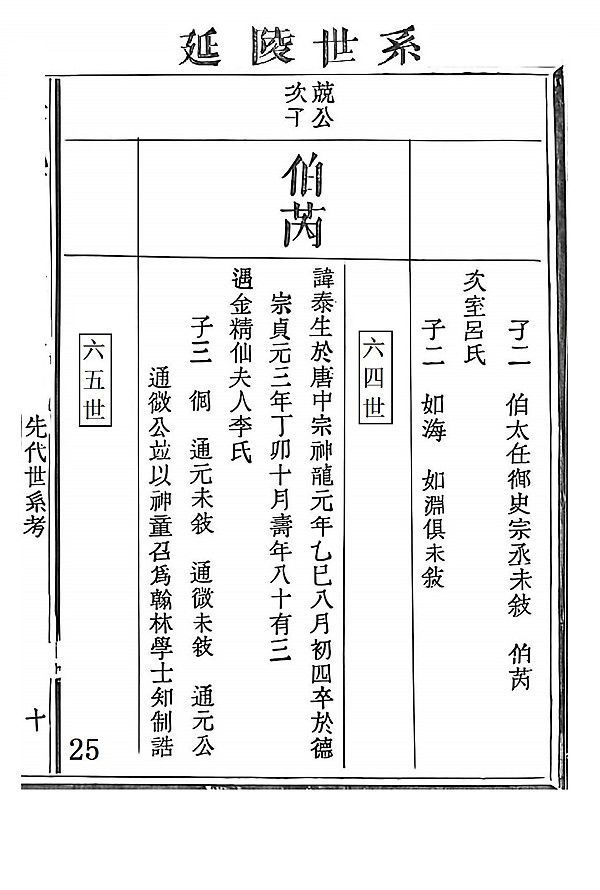 延陵世系
子二 伯太任御史宗丞未敍 伯芮
次室呂氏
子二 如海 如淵俱未敍
六四世
兢公
次子
伯芮
諱泰生於唐中宗神龍元年乙巳八月初四卒於德
宗貞元三年丁卯十月壽年八十有三
遇金精仙夫人李氏
子三 侗 通元未敍 通微未敍 通元公
通微公竝以神童召爲翰林學士知制誥
六五世
先代世系考
十
25